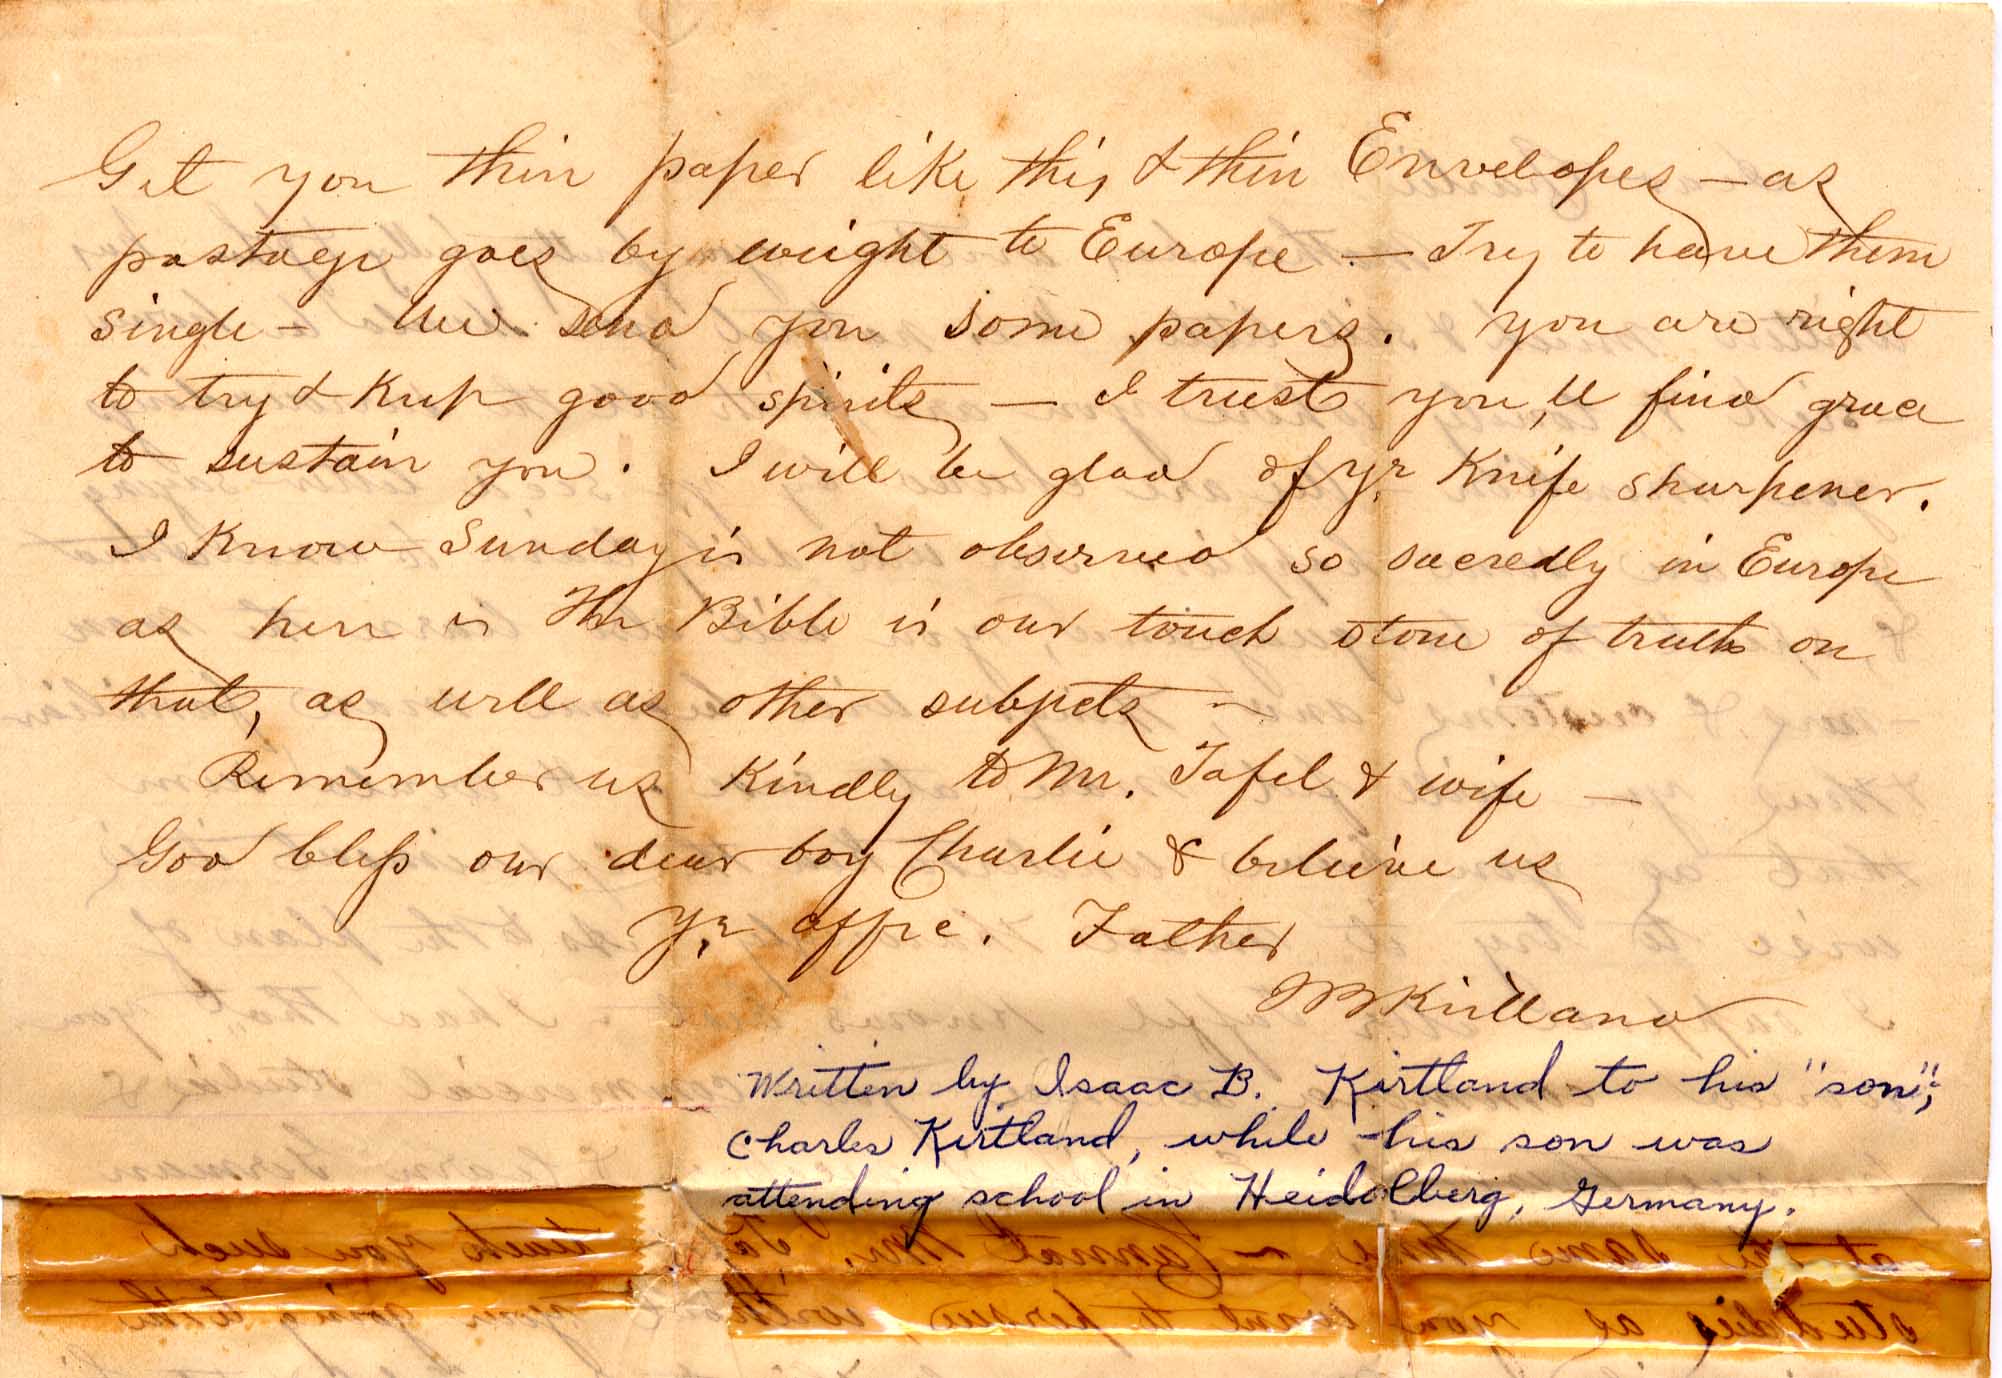 Get you thin paper like this & thin Envelopes — as
postage goes by weight to Europe — Try to have them
single — We send you some papers. You are right
to try & keep good spirits — I trust you,ll find grace
to sustain you. I will be glad of yr Knife sharpener.
I Know Sunday is not observed so sacredly in Europe
as here is The Bible is our touch stone of truth on
that, as well as other subjects —
Remember us Kindly to Mr. Tafel & wife —
God bless our dear boy Charlie & believe us
Yr affec. Father
I B Kirtland
Written by Isaac B. Kirtland to his "son",
Charles Kirtland, while his son was
attending school in Heidelberg, Germany.